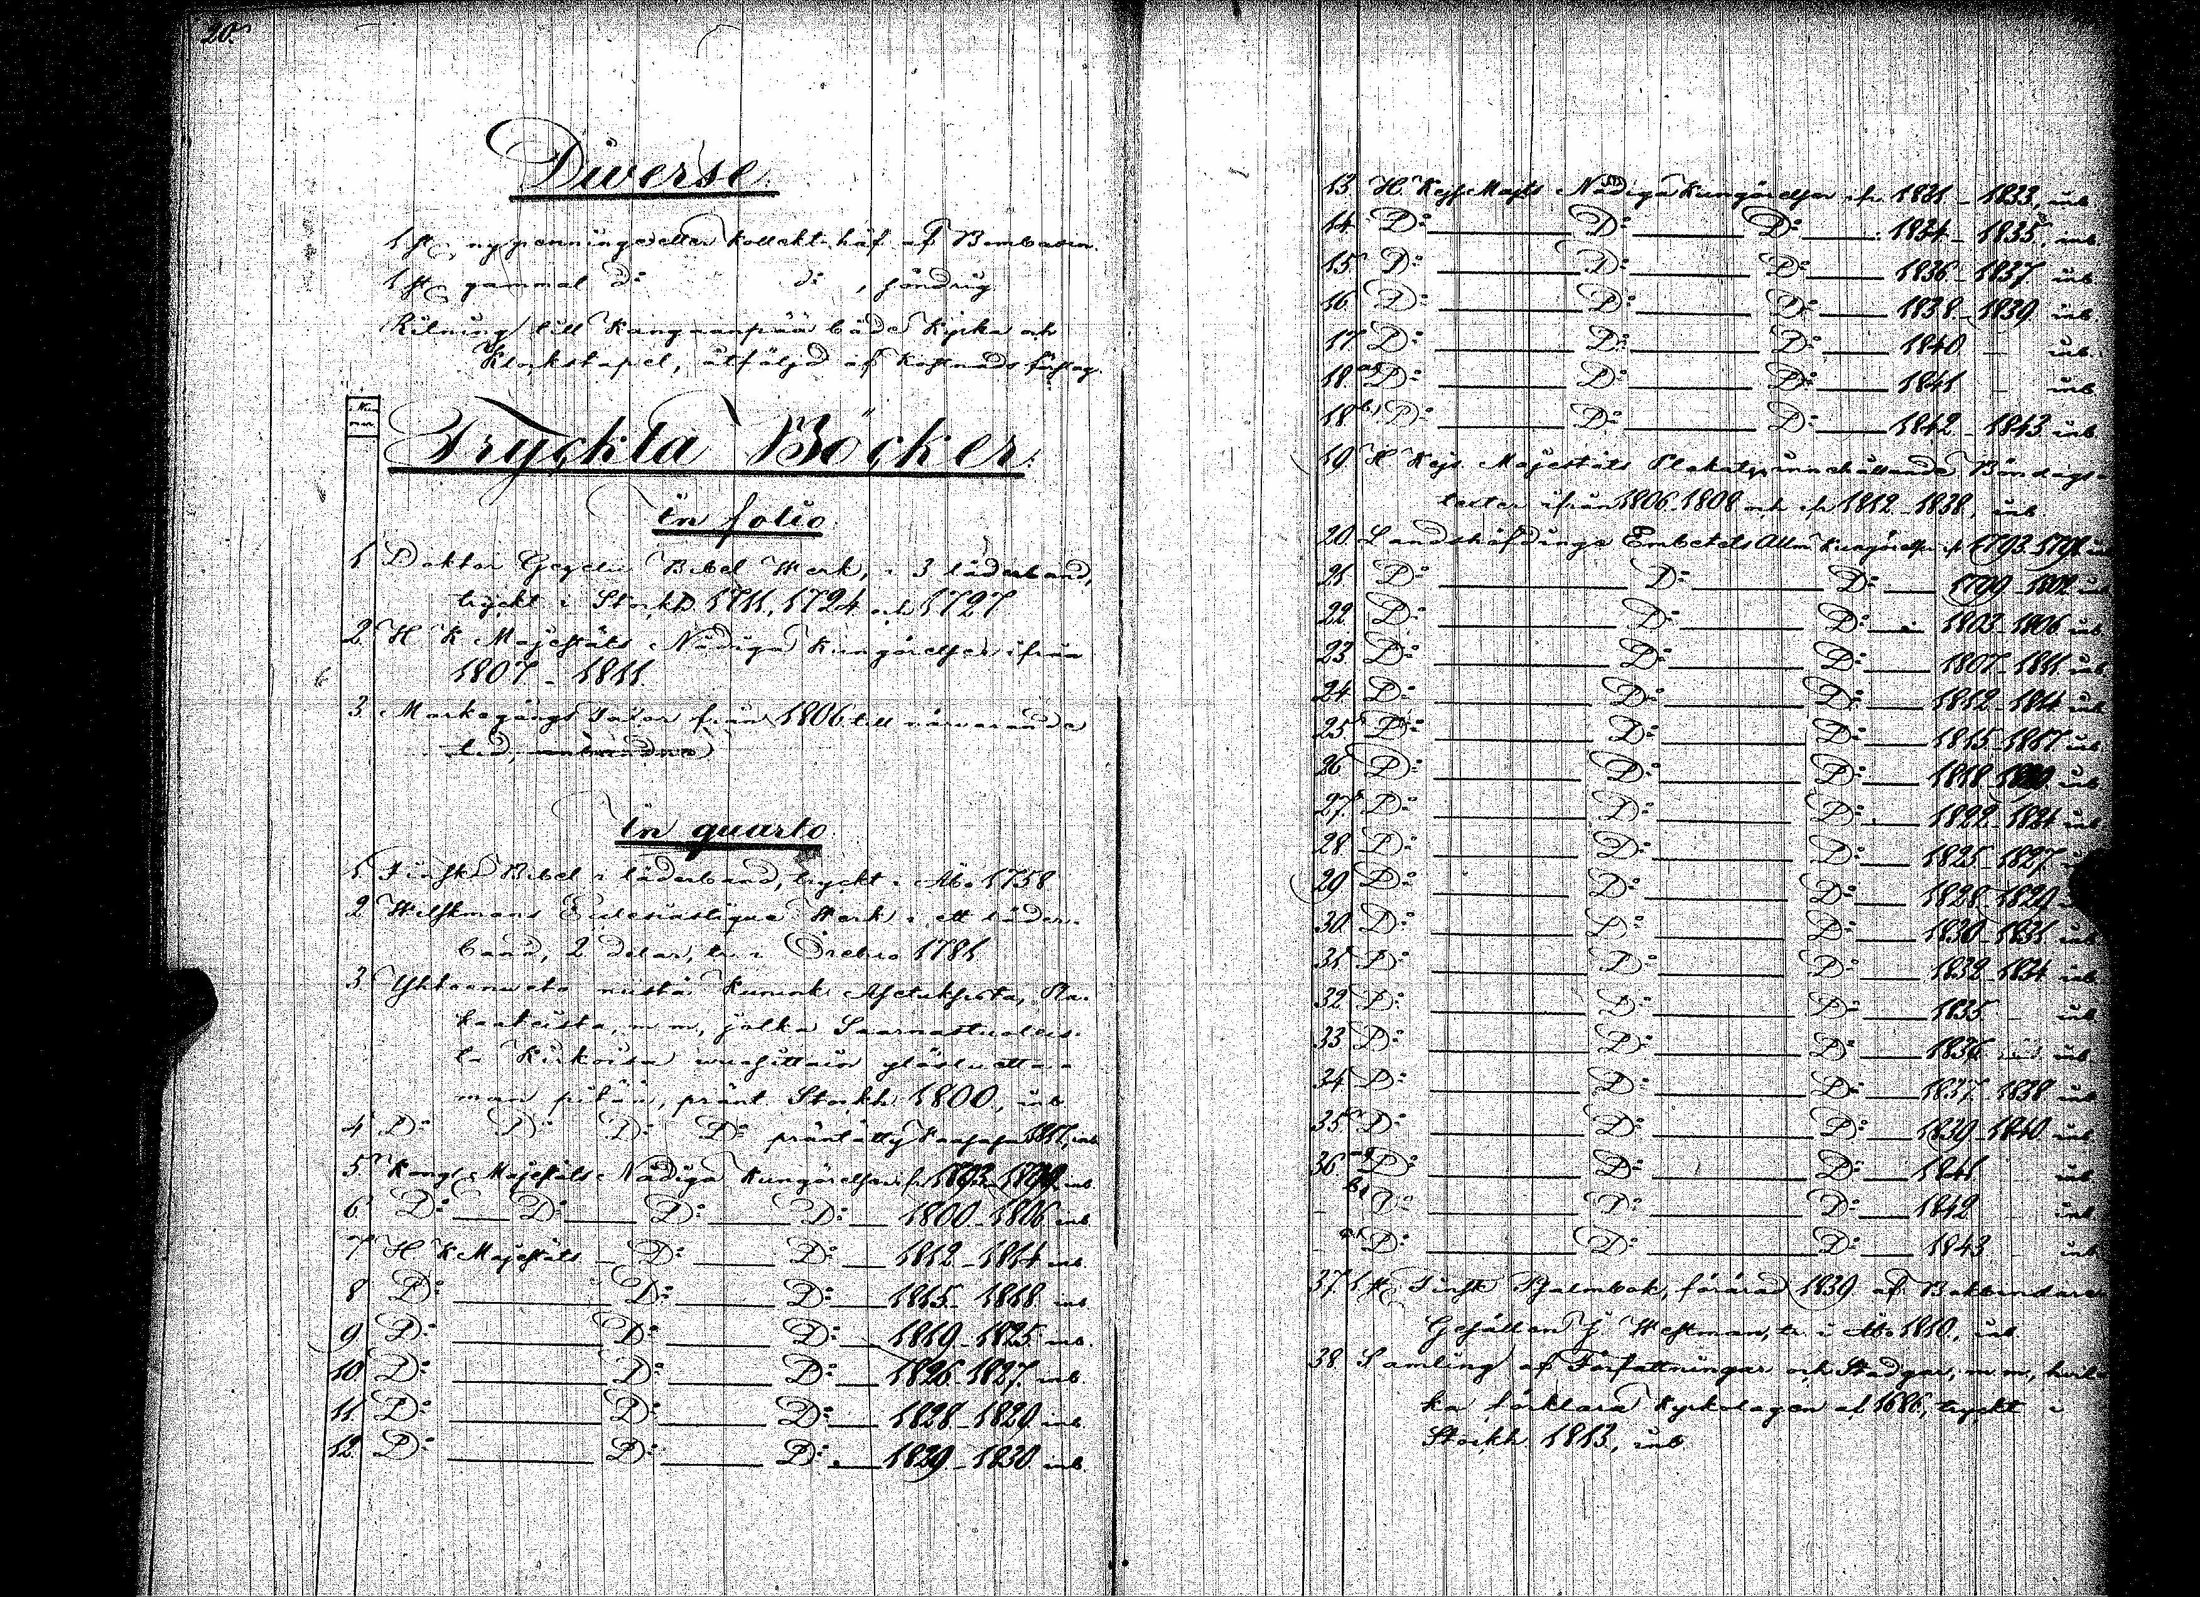 20.
Diverse.
1 st. ny penninge eller kollekt. häf af Bombasin.
1 st. gammal d:o d:o, söndrig
Ritning till Kangasnpää både Kyrka och
Klockstapel, åtföljd af Kostnads förslag.
N:
Tryckta Böcker.
in folio
1 Doktor Gezelii Bibel Werk, i 3 läderband,
tryckt i Stockh. 1711, 1724 och 1727
2. H K Majestäts Nådiga Kungörelser ifrån
1807 - 1811.
3. Markegångs Taxor från 1806 till närvarande
tid,
in quarto
1. Finsk Bibel i läderband, tryckt i Åbo 1758
2 Wilskmans Eclesiastique Werk i ett läder-
band, 2 delar, tr. i Örebro 1781
3 Yhteenveto niistä Kunink. Asetuksista, Pla-
kaateista, m. m., jotka Saarnastuoleis-
ta Kirkoisa wuosittain ylösluetta-
man pitää, pränt. Stockh. 1800, inb
4 D:o D:o D:o D:o präntätty 1817, inb
5 Kongl. Majestäts Nådiga Kungörelser ifr. 1793 1799 inb.
6 D:o D:o D:o D:o 1800 - 1806 inb
7 H K Majestäts D:o D:o 1812 - 1814 inb
8 D:o D:o D:o 1815 - 1818 inb
9 D:o D:o D:o 1819 - 1825 inb.
10 D:o D:o D:o 1826 - 1827. inb
11. D:o D:o D:o 1828 - 1829 inb
12. D:o D:o D:o 1829 - 1830 inb.
13. H Kejs. Majsts Nådiga Kungörelser ifr. 1831 - 1833, inb
14. D:o D:o D:o 1834 - 1835, inb.
15 D:o D:o D:o 1836 - 1837 inb
16 D:o D:o D:o 1838 - 1839 inb.
17 D:o D:o D:o 1840 - inb.
18 a) D:o D:o D:o 1841 - inb
18 b) D:o D:o D:o 1842 - 1843 inb
19 H Kejs. Majestäts Plakater innehållande Böndags-
texter ifrån 1806 - 1808 och ifr 1812 - 1838, inb
20. Landshöfdinge Embetets Allm Kungörelser ifr 1793 - 1798 inb
21 D:o D:o D:o 1799 - 1802 inb
22 D:o D:o D:o 1803 - 1806 inb
23 D:o D:o D:o 1807 - 1811 inb
24 D:o D:o D:o 1812 - 1814 inb
25 D:o D:o D:o 1815 - 1817 inb
26 D:o D:o D:o 1818 - inb
27. D:o D:o D:o 1822 - 1824 inb
28. D:o D:o D:o 1825 - 1827.
29 D:o D:o D:o 1828 - 1829
30. D:o D:o D:o 1830 - 1831 inb
31 D:o D:o D:o 1832 - 1834 inb
32 D:o D:o D:o 1835 - inb
33 D:o D:o D:o 1836 inb
34 D:o D:o D:o 1837 - 1838 inb
35 D:o D:o D:o 1839 - 1840 inb
36 a) D:o D:o D:o 1841 inb
- b) D:o D:o D:o 1842 inb.
- c) D:o D:o D:o 1843 - inb
37. 1 st. Finsk Psalmbok, förärad 1839 af Bokbindare
Gesällen J. Westman, tr. i Åbo 1810, inb
38. Samling af Författningar och Stadgar, m. m., hvil-
ka förklara Kyrkolagen af 1686, tryckt i
Stockh. 1813, inb